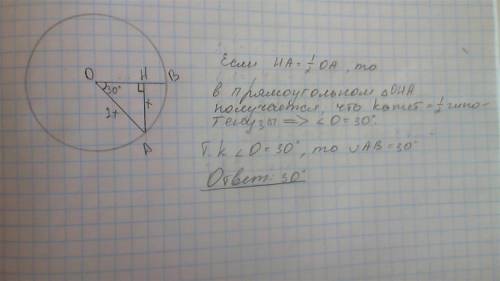 O
H
B
30°
2x
x
A
Если HA = 1/2 OA, то
в прямоугольном △OHA
получается, что катет = 1/2 гипо-
тенузы => ∠O = 30°.
Т.к ∠O = 30°, то ∪AB = 30°
Ответ: 30°